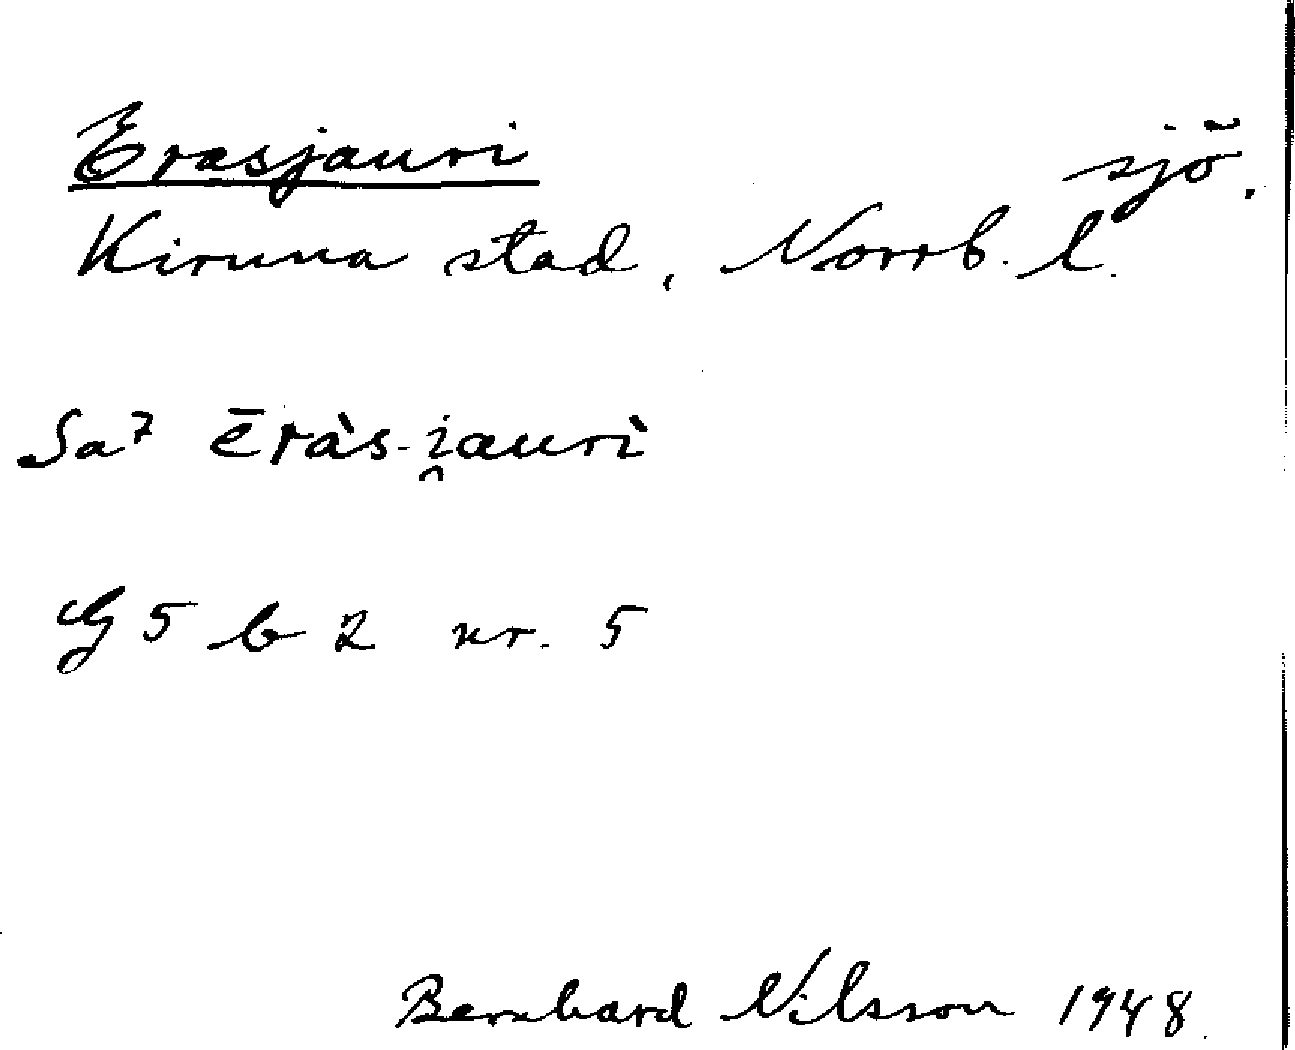 Erasjauri sjö.
Kiruna stad, Norrb. l.
Sa7 ēràs-i̯aurì
G 5 b 2 nr. 5
Bernhard Nilsson 1948